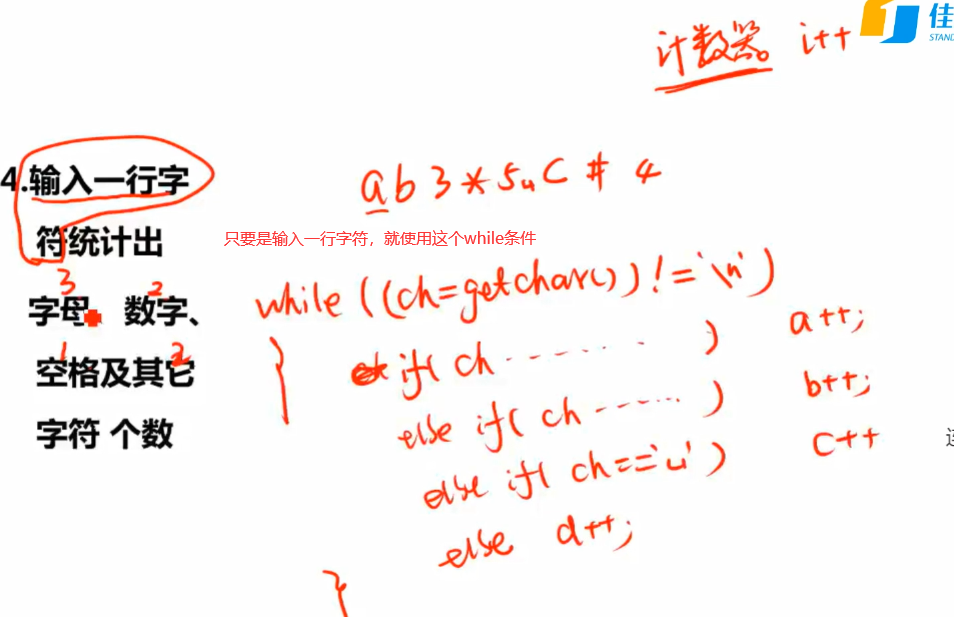 计数器。 i++
佳
STAND
4.输入一行字
符统计出
字母、 数字、
空格及其它
字符 个数
3 2
1 2
ab3*5␣C#4
只要是输入一行字符，就使用这个while条件
while((ch=getchar())!='\n')
{
if(ch ……) a++;
else if(ch ……) b++;
else if(ch=='␣') c++
else d++;
}